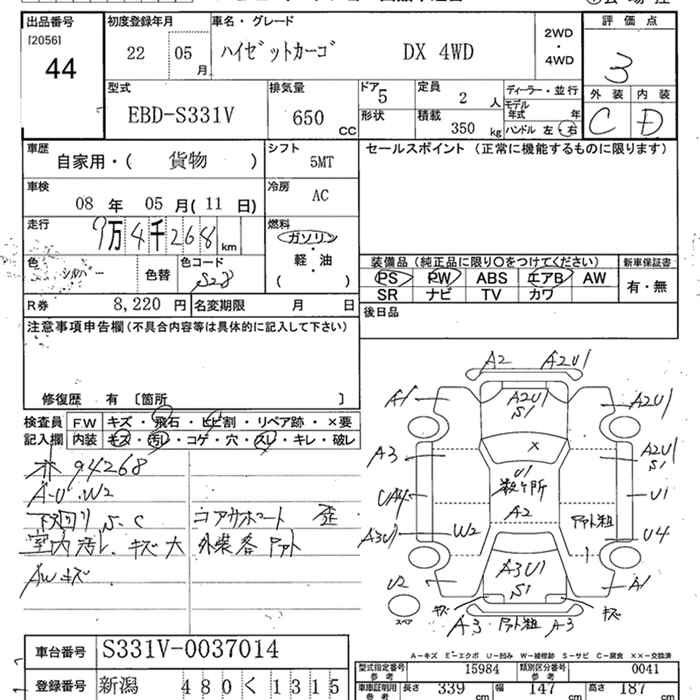 出品番号 初度登録年月 車名・グレード 評価点
[2056]
44
22 05月 ハイゼットカーゴ DX 4WD
2WD・4WD
3
型式 排気量 ドア 5 定員 2人 ディーラー・並行
外装 内装
EBD-S331V 650 CC
形状 積載 350 kg
モデル年式 年
ハンドル 左・右
C D
車歴 シフト セールスポイント (正常に機能するものに限ります)
自家用・( 貨物 ) 5MT
車検 冷房
08年 05月(11日) AC
走行 燃料
9万4千268km
ガソリン
軽・油
( )
色 シルバー 色替 色コード S28
装備品(純正品に限り○をつけてください) 新車保証書
PS PW ABS エアB AW
SR ナビ TV カワ
有・無
R券 8,220円 名変期限 月 日
後日品
注意事項申告欄(不具合内容等は具体的に記入して下さい)
修復歴 有 〔箇所 〕
検査員記入欄
FW キズ・飛石・ヒビ割・リペア跡・×要
内装 キズ・汚レ・コゲ・穴・スレ・キレ・破レ
94268
A-U・W2
下廻り S・C コアサポート 歪
室内汚レ、キズ大 外装各
AWキズ
A2 A2U1
A1 A2U1 S1 A2U1
A3 × A2U1 S1
UA4 U1 U1
数ヶ所
A2
A3U1 W2 U4
U2 A3U1 S1 A1
スペア キズ キズ
A3 A3
A-キズ E-エクボ U-凹み W-補修跡 S-サビ C-腐食 ××-交換済
車台番号 S331V-0037014
型式指定番号 参考 15984 類別区分番号 参考 0041
登録番号 新潟 480く1315
車庫証明用 参考 長さ 339cm 幅 147cm 高さ 187cm